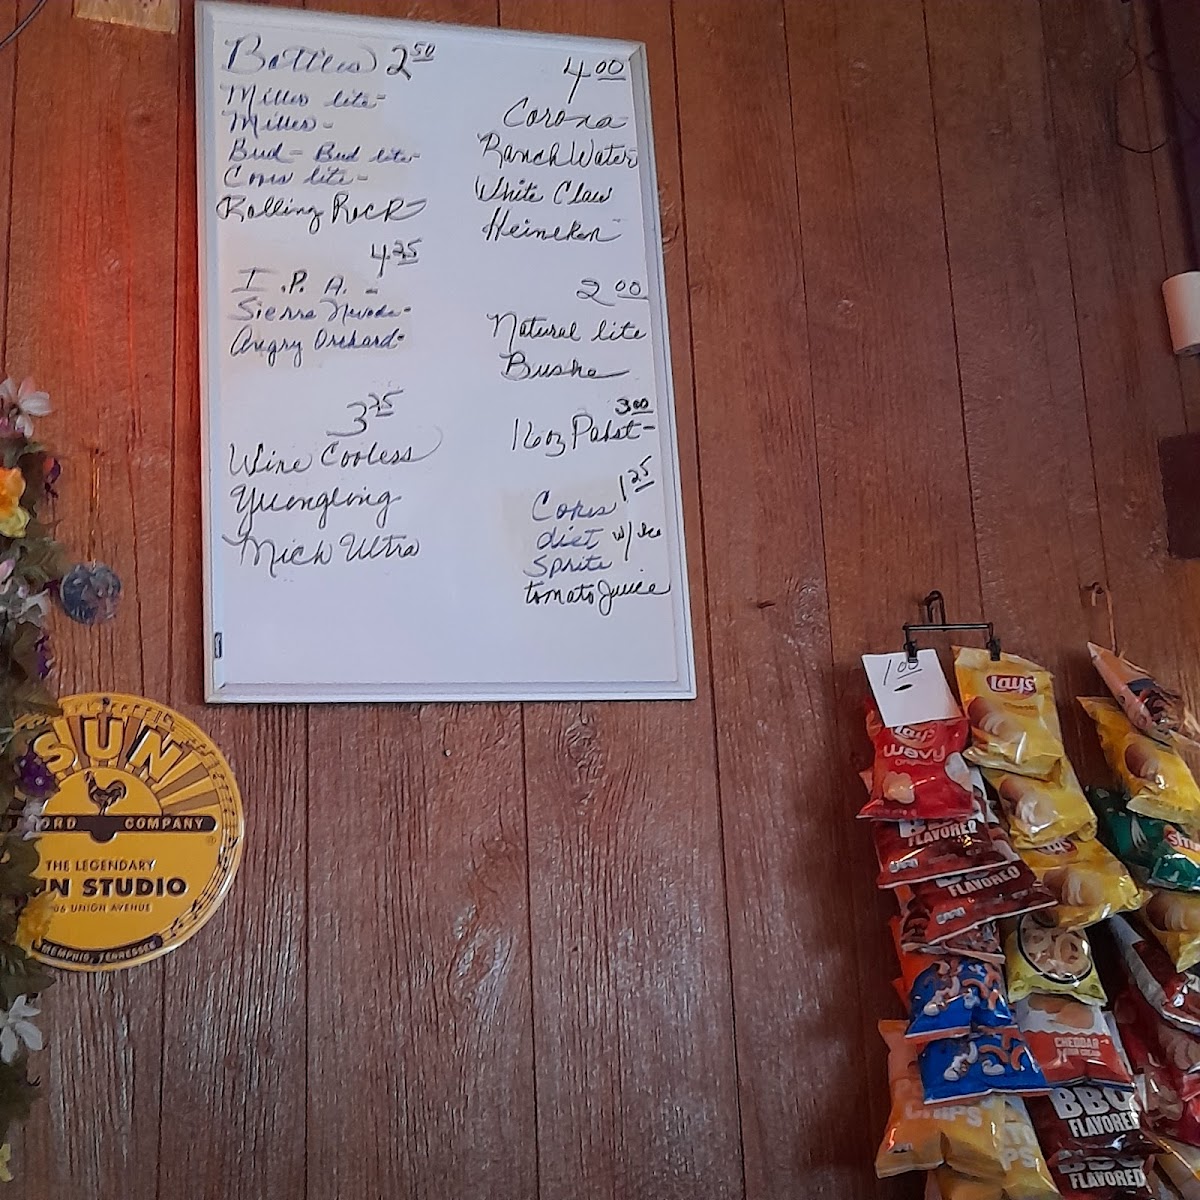 Bottles 2.50
Miller lite-
Miller-
Bud - Bud lite-
Coors lite-
Rolling Rock-
4.25
I.P.A. -
Sierra Nevada-
Angry Orchard-
3.25
Wine Coolers
Yuengling
Mich Ultra
4.00
Corona-
Ranch Water
White Claw
Heineken-
2.00
Natural lite
Bushe
3.00
16oz Pabst-
1.25
Cokes
diet w/ Ice
Sprite
tomato Juice
SUN
ORD COMPANY
THE LEGENDARY
UN STUDIO
06 UNION AVENUE
MEMPHIS, TENNESSEE
1.00
Lay's
Lay's
wavy
FLAVORED
FLAVORED
CHEDDAR
CHIPS
BBQ
FLAVORED
BBQ
FLAVORED